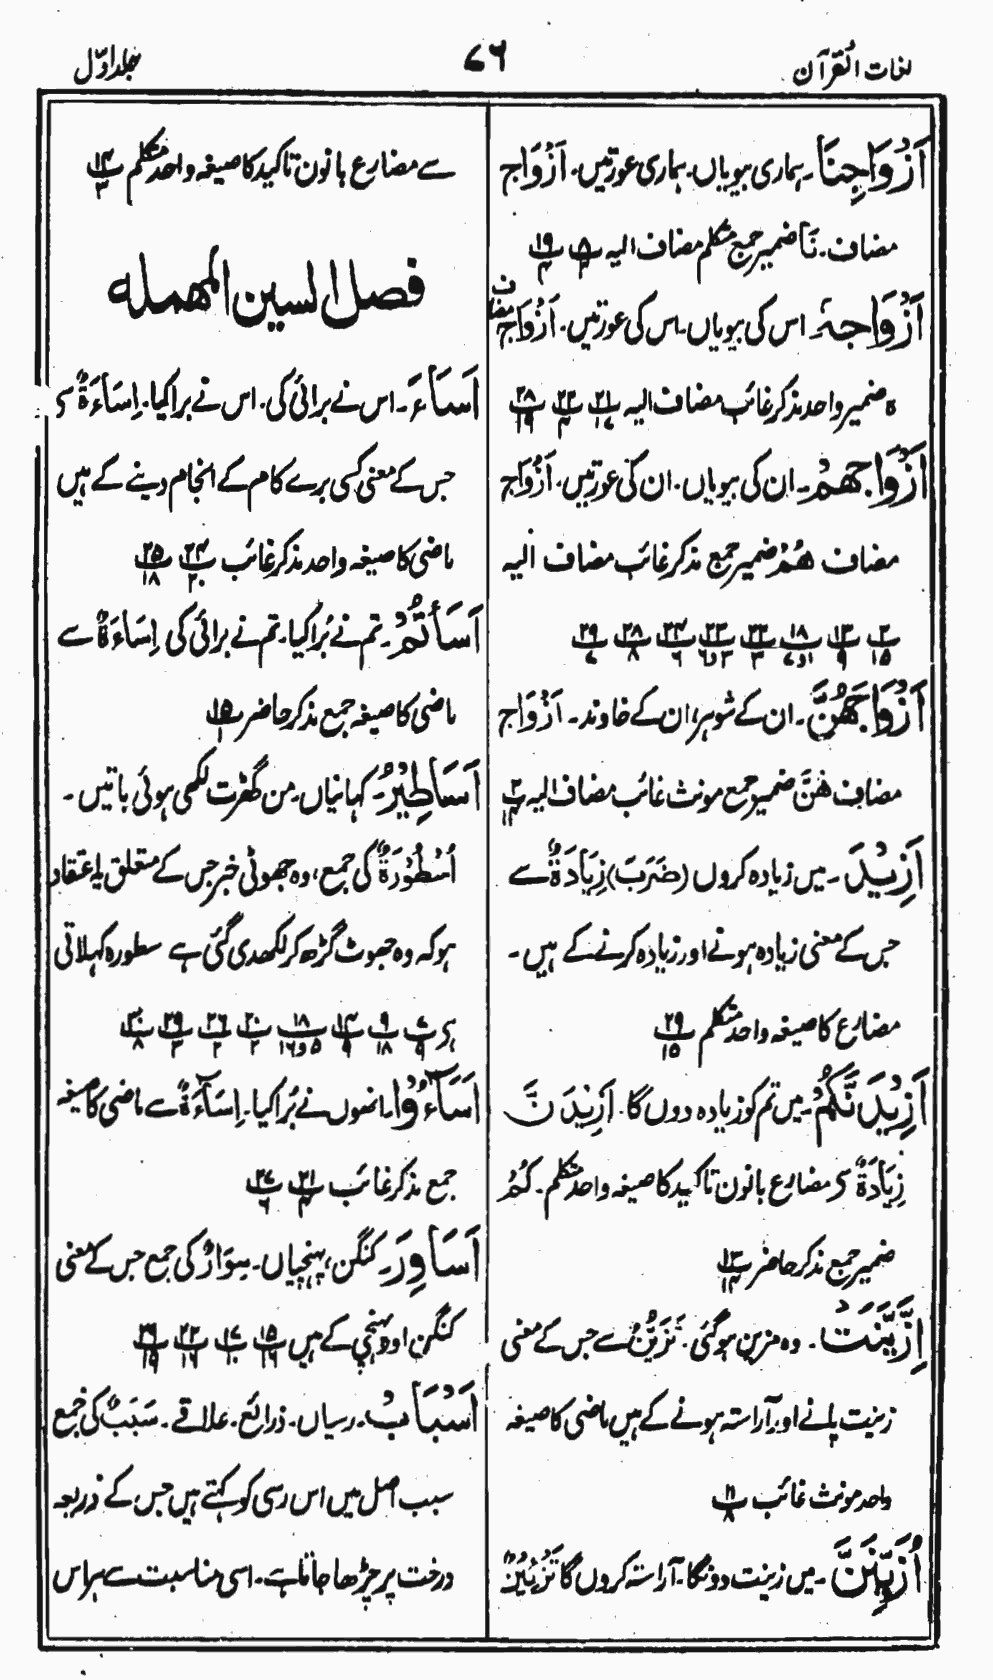 لغات القرآن
۷۶
جلد اوّل
اَزْوَاجِنَا۔ ہماری بیویاں۔ ہماری عورتیں۔ اَزْوَاج
مضاف۔ نَا ضمیر جمع متکلم مضاف الیہ ۸/۳ ۱۹/۴
اَزْوَاجِہٖ اس کی بیویاں۔ اس کی عورتیں۔ اَزْوَاج مضاف
ہ ضمیر واحد مذکر غائب مضاف الیہ ۲۱/۱۷ ۲۲/۴ ۲۸/۱۹
اَزْوَاجِھِمْ۔ ان کی بیویاں۔ ان کی عورتیں۔ اَزْوَاج
مضاف ھُمْ ضمیر جمع مذکر غائب مضاف الیہ
۲/۱۵ ۱۳/۹ ۱۸/۱و۷ ۲۲/۳ ۲۳/۳و۶ ۲۴/۶ ۲۸/۸ ۲۹/۷
اَزْوَاجَھُنَّ۔ ان کے شوہر، ان کے خاوند۔ اَزْوَاج
مضاف ھُنَّ ضمیر جمع مونث غائب مضاف الیہ ۲/۱۴
اَزِیْدَ۔ میں زیادہ کروں (ضَرَبَ) زِیَادَۃٌ سے
جس کے معنی زیادہ ہونے اور زیادہ کرنے کے ہیں۔
مضارع کا صیغہ واحد متکلم ۲۹/۱۵
اَزِیْدَنَّکُمْ۔ میں تم کو زیادہ دوں گا۔ اَزِیْدَنَّ
زِیَادَۃٌ سے مضارع بانون تاکید کا صیغہ واحد متکلم۔ کُمْ
ضمیر جمع مذکر حاضر ۱۳/۱۴
اِزَّیَّنَتْ۔ وہ مزین ہوگئی۔ تَزَیُّنٌ سے جس کے معنی
زینت پانے اور آراستہ ہونے کے ہیں ماضی کا صیغہ
واحد مونث غائب ۱۱/۸
اُزَیِّنَنَّ۔ میں زینت دونگا۔ آراستہ کروں گا تَزْئِیْنٌ
سے مضارع بانون تاکید کا صیغہ واحد متکلم ۱۴/۳
فصل السین المہملہ
اَسَاءَ۔ اس نے برائی کی۔ اس نے برا کیا۔ اِسَاءَۃٌ سے
جس کے معنی کسی برے کام کے انجام دینے کے ہیں
ماضی کا صیغہ واحد مذکر غائب ۲۴/۲۰ ۲۵/۱۸
اَسَأْتُمْ۔ تم نے بُرا کیا۔ تم نے برائی کی اِسَاءَۃٌ سے
ماضی کا صیغہ جمع مذکر حاضر ۱۵/۱
اَسَاطِیْرُ۔ کہانیاں۔ من گھڑت لکھی ہوئی باتیں۔
اُسْطُوْرَۃٌ کی جمع، وہ جھوٹی خبر جس کے متعلق یہ اعتقاد
ہو کہ وہ جھوٹ گڑھ کر لکھدی گئی ہے سطورہ کہلاتی
ہے ۷/۹ ۹/۱۸ ۱۴/۹ ۱۸/۵و۱۶ ۲۰/۲ ۲۶/۲ ۲۹/۳ ۳۰/۸
اَسَآءُوْا۔ انھوں نے بُرا کیا۔ اِسَاءَۃٌ سے ماضی کا صیغہ
جمع مذکر غائب ۲۱/۴ ۲۷/۶
اَسَاوِرَ۔ کنگن، پہنچیاں۔ سِوَارٌ کی جمع جس کے معنی
کنگن اور پہنچی کے ہیں ۱۵/۱۶ ۱۷/۱۰ ۲۲/۱۶ ۲۹/۱۹
اَسْبَابَ۔ رسیاں۔ ذرائع۔ علاقے۔ سَبَبٌ کی جمع
سبب اصل میں اس رسی کو کہتے ہیں جس کے ذریعہ
درخت پر چڑھا جاتا ہے۔ اسی مناسبت سے ہر اس